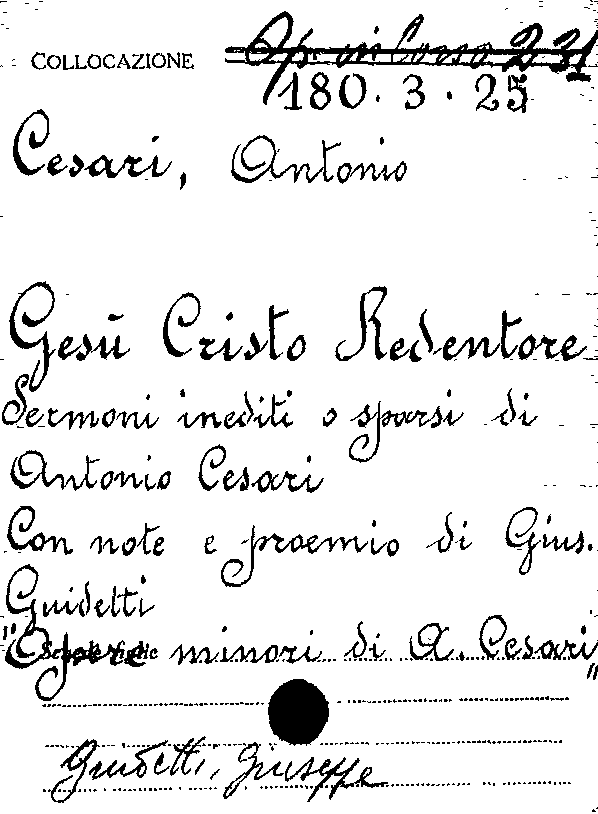 COLLOCAZIONE Op. in Corso 231
180. 3. 25
Cesari, Antonio
Gesù Cristo Redentore
Sermoni inediti o sparsi di
Antonio Cesari
Con note e proemio di Gius.
Guidetti
"Opere minori di A. Cesari"
Guidetti, Giuseppe